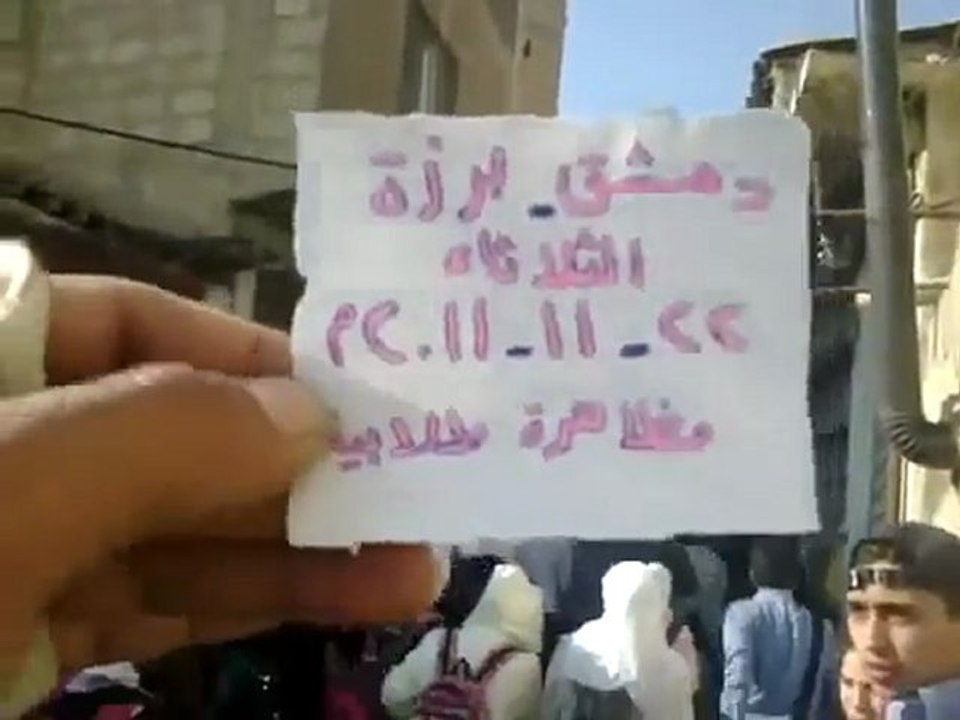 دمشق - برزة
الثلاثاء
٢٢ - ١١ - ٢٠١١م
مظاهرة طلابية